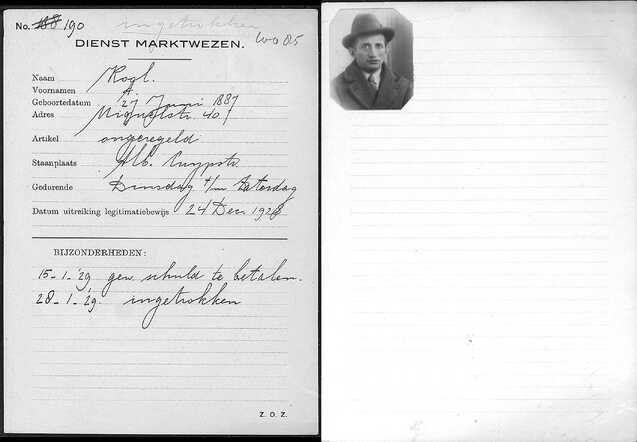 No. 188 190 ingetrokken
DIENST MARKTWEZEN. W085
Naam Kogl.
Voornamen A.
Geboortedatum 27 Juni 1887
Adres 40.
Artikel ongeregeld
Staanplaats Alb. Cuypstr.
Gedurende Dinsdag t/m Zaterdag
Datum uitreiking legitimatiebewijs 24 Dec. 1928
BIJZONDERHEDEN:
15-1-'29 gew. schuld te betalen.
28-1-'29. ingetrokken
Z. O. Z.